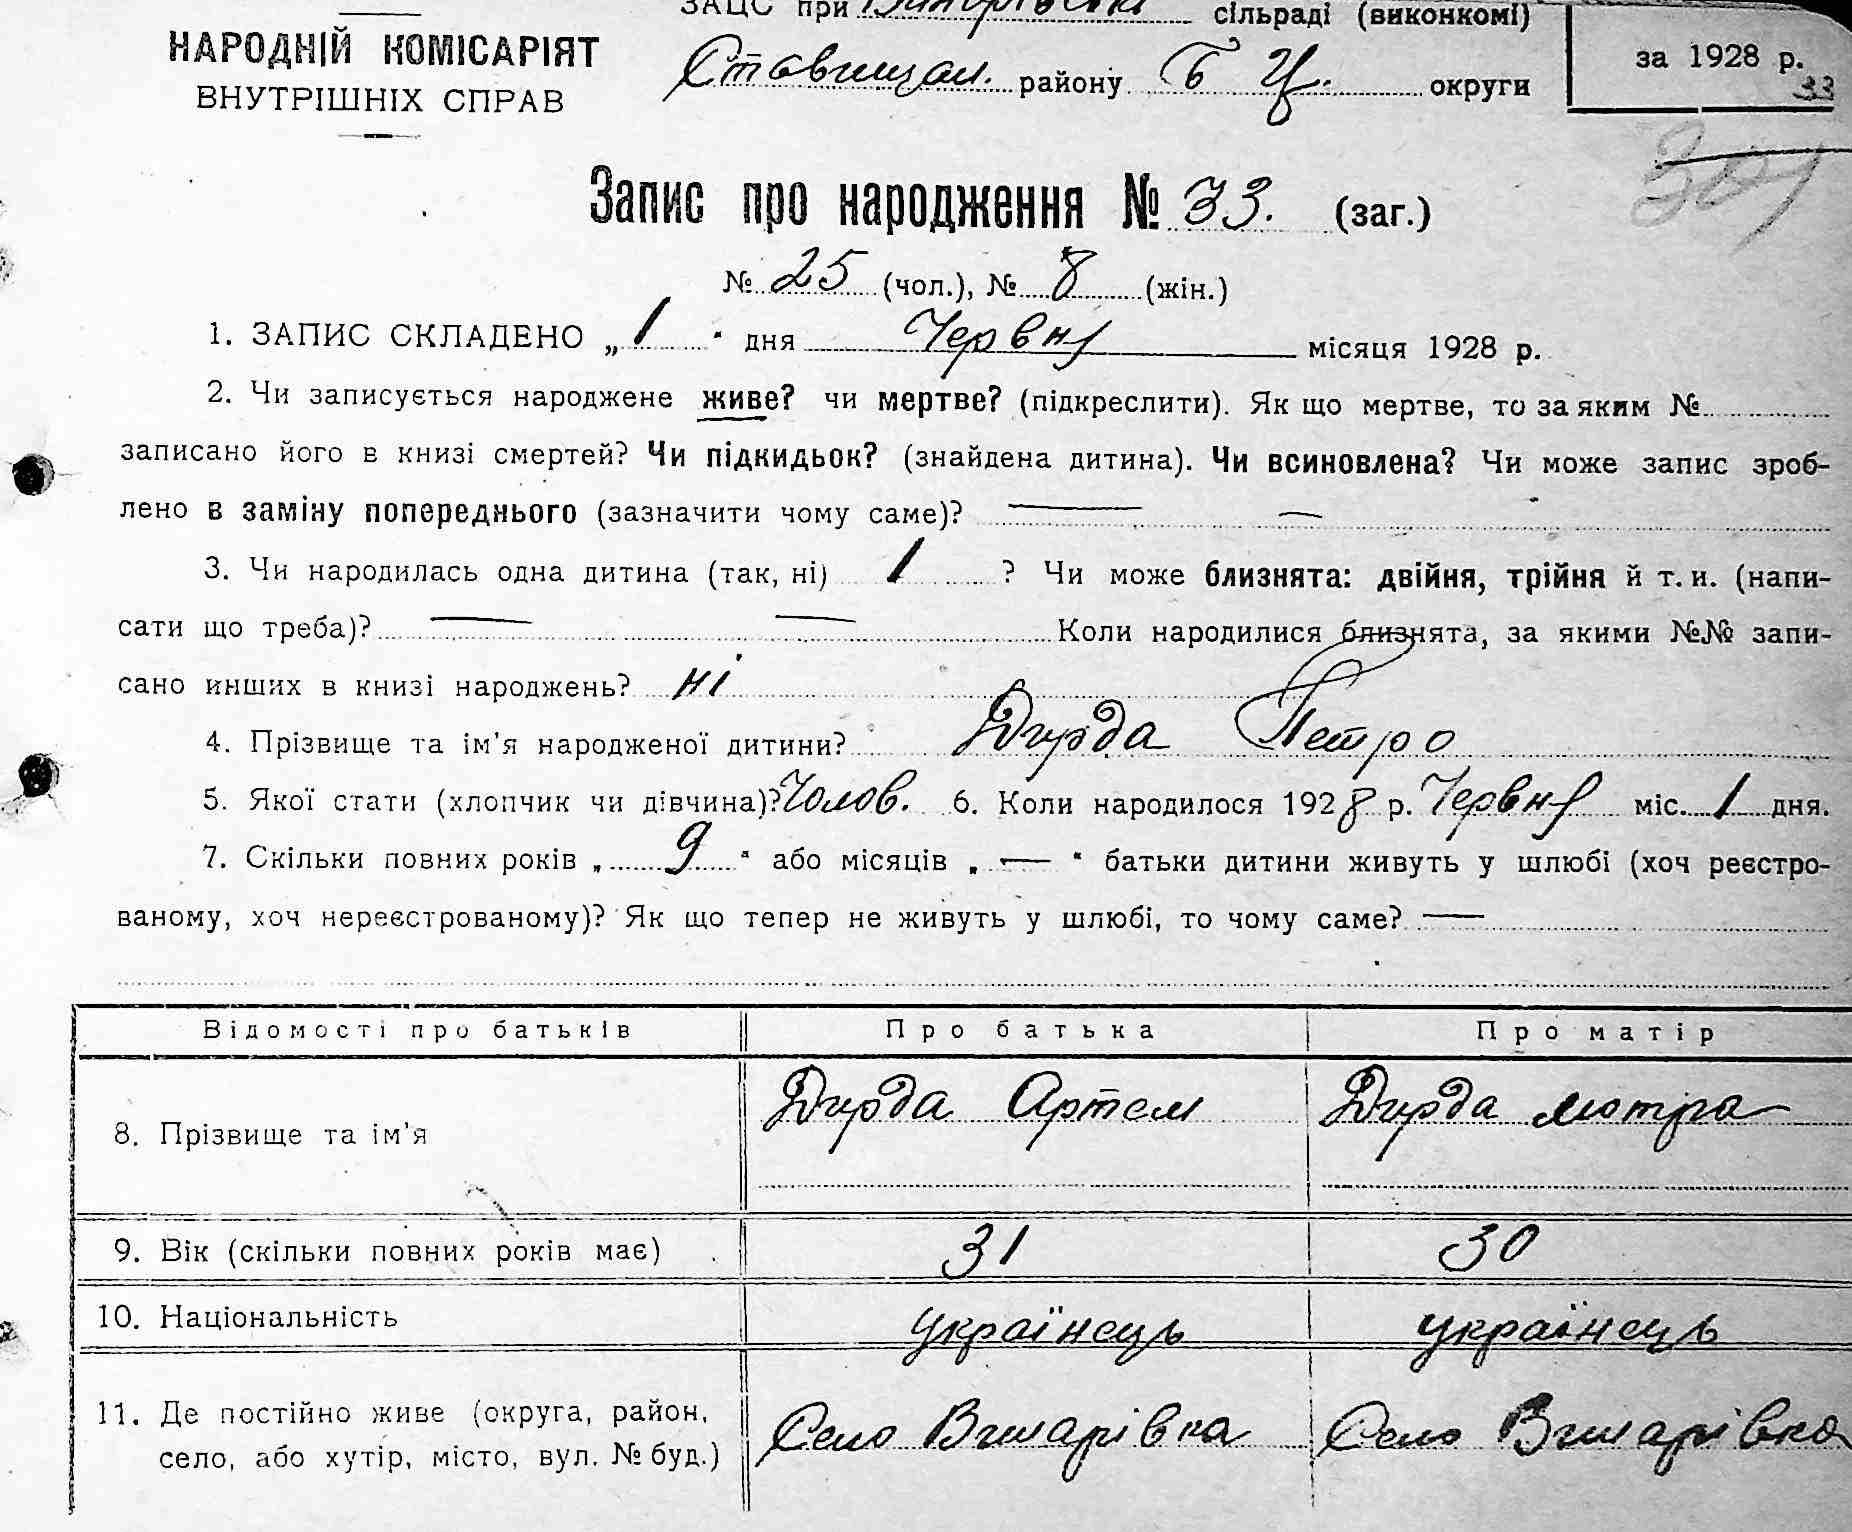 ЗАЦС при сільраді (виконкомі)
НАРОДНІЙ КОМІСАРІЯТ
ВНУТРІШНІХ СПРАВ
Ставищан. району Б Ц. округи
за 1928 р.
33
301
Запис про народження № 33. (заг.)
№ 25 (чол.), № 8 (жін.)
1. ЗАПИС СКЛАДЕНО „ 1 " дня Червня місяця 1928 р.
2. Чи записується народжене живе? чи мертве? (підкреслити). Як що мертве, то за яким №
записано його в книзі смертей? Чи підкидьок? (знайдена дитина). Чи всиновлена? Чи може запис зроб-
лено в заміну попереднього (зазначити чому саме)? — —
3. Чи народилась одна дитина (так, ні) 1 ? Чи може близнята: двійня, трійня й т. и. (напи-
сати що треба)? — — Коли народилися близнята, за якими №№ запи-
сано инших в книзі народжень? ні
4. Прізвище та ім'я народженої дитини? Дирда Петро
5. Якої стати (хлопчик чи дівчина)? Чолов. 6. Коли народилося 1928 р. Червня міс. 1 дня.
7. Скільки повних років „ 9 " або місяців „ — " батьки дитини живуть у шлюбі (хоч реєстро-
ваному, хоч нереєстрованому)? Як що тепер не живуть у шлюбі, то чому саме? —
Відомості про батьків Про батька Про матір
8. Прізвище та ім'я Дирда Артем Дирда Мотра
9. Вік (скільки повних років має) 31 30
10. Національність українець українець
11. Де постійно живе (округа, район,
село, або хутір, місто, вул. № буд.) Село Село